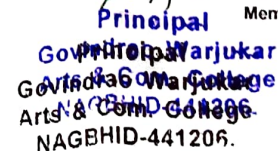 Mem
Principal
Govindrao Warjukar
Arts & Com. College
NAGBHID-441206.
Principal
Govindrao Warjukar
Arts & Com. College
NAGBHID-441206.